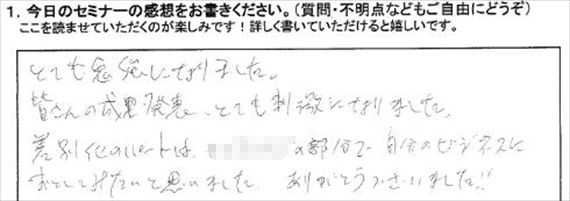 1. 今日のセミナーの感想をお書きください。(質問・不明点などもご自由にどうぞ)
ここを読ませていただくのが楽しみです!詳しく書いていただけると嬉しいです。
とても勉強になりました。
皆さんの成果発表、とても刺激になりました。
差別化のパートは、の部分で自分のビジネスに
おとしてみたいと思いました。ありがとうございました!!